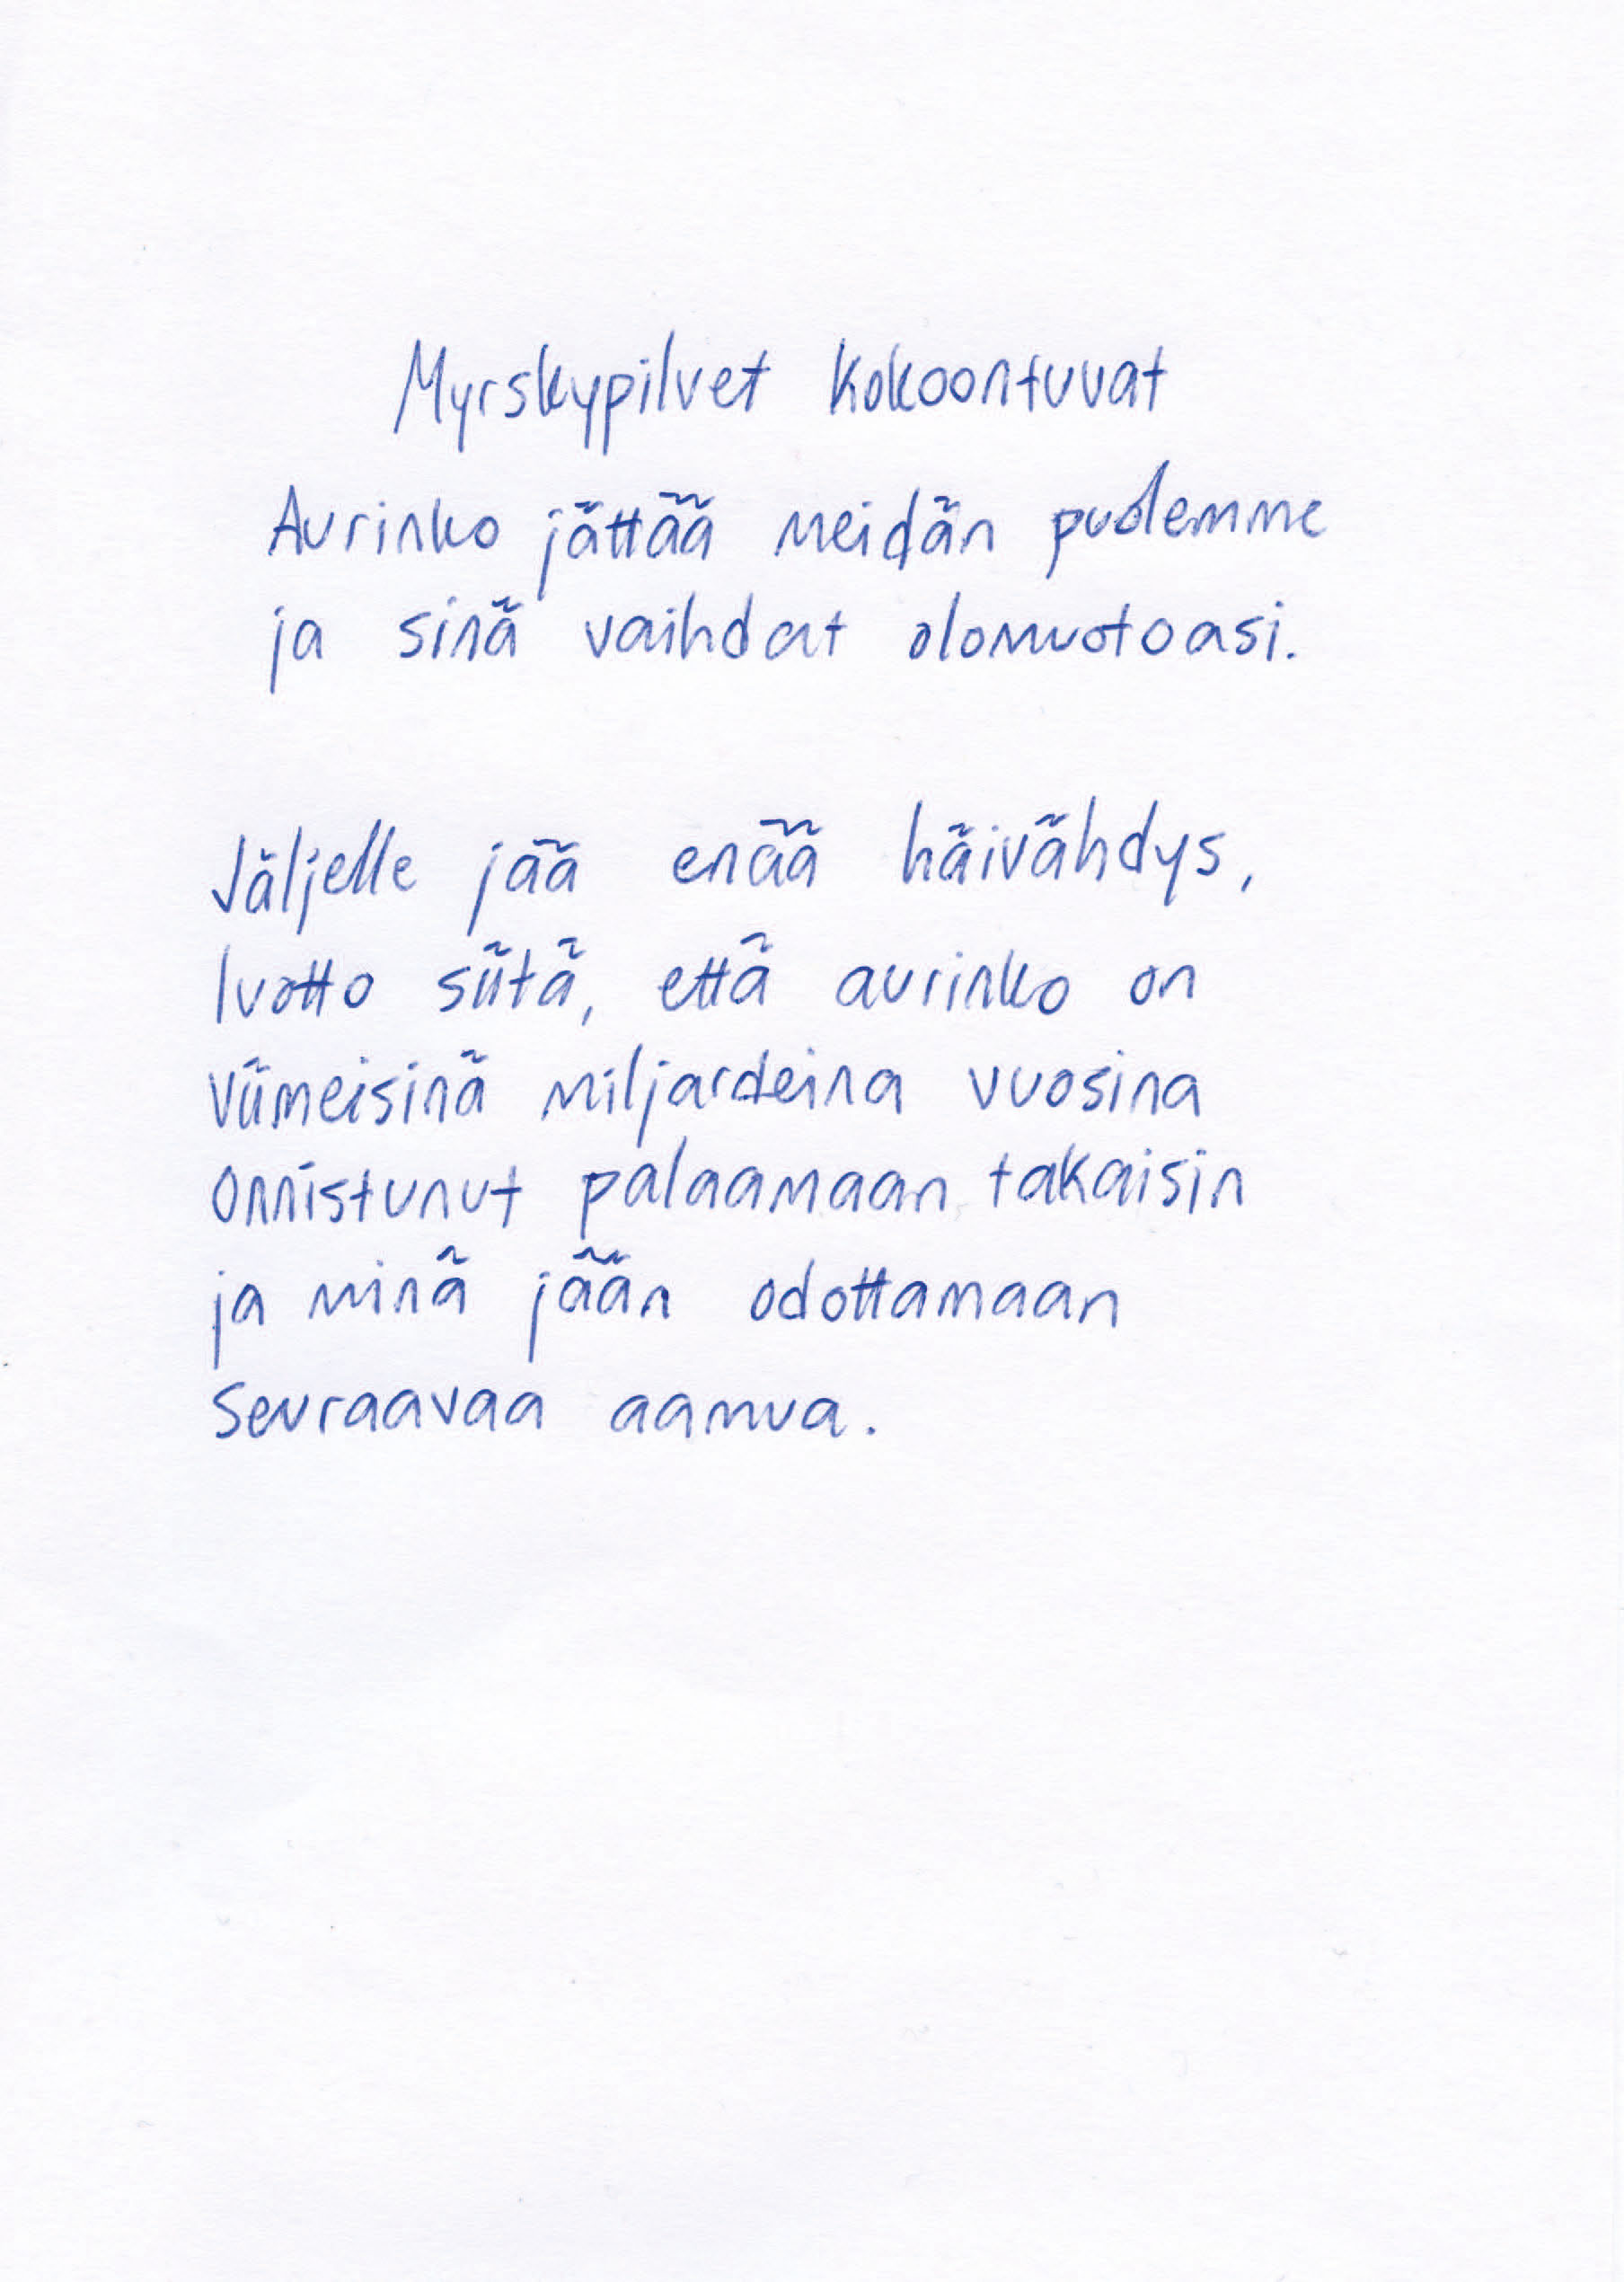 Myrskypilvet kokoontuvat
Aurinko jättää meidän puolemme
ja sinä vaihdat olomuotoasi.
Jäljelle jää enää häivähdys,
luotto siitä, että aurinko on
viimeisinä miljardeina vuosina
onnistunut palaamaan takaisin
ja minä jään odottamaan
seuraavaa aamua.